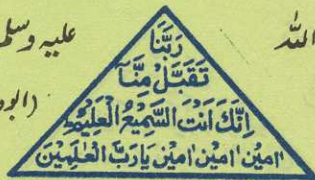 اللہ
علیہ وسلم
(ابو
رَبَّنَا
تَقَبَّلْ مِنَّا
اِنَّكَ اَنْتَ السَّمِيْعُ الْعَلِيْمُ
اٰمِيْن اٰمِيْن اٰمِيْن يَارَبَّ الْعٰلَمِيْنَ